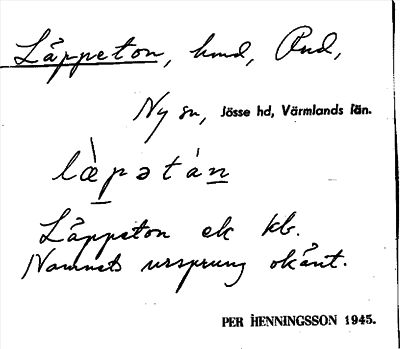 Läppeton, hmd, Rud,
Ny sn, Jösse hd, Värmlands län.
læ̀pətán
Läppeton ek kb.
Namnets ursprung okänt.
PER HENNINGSSON 1945.